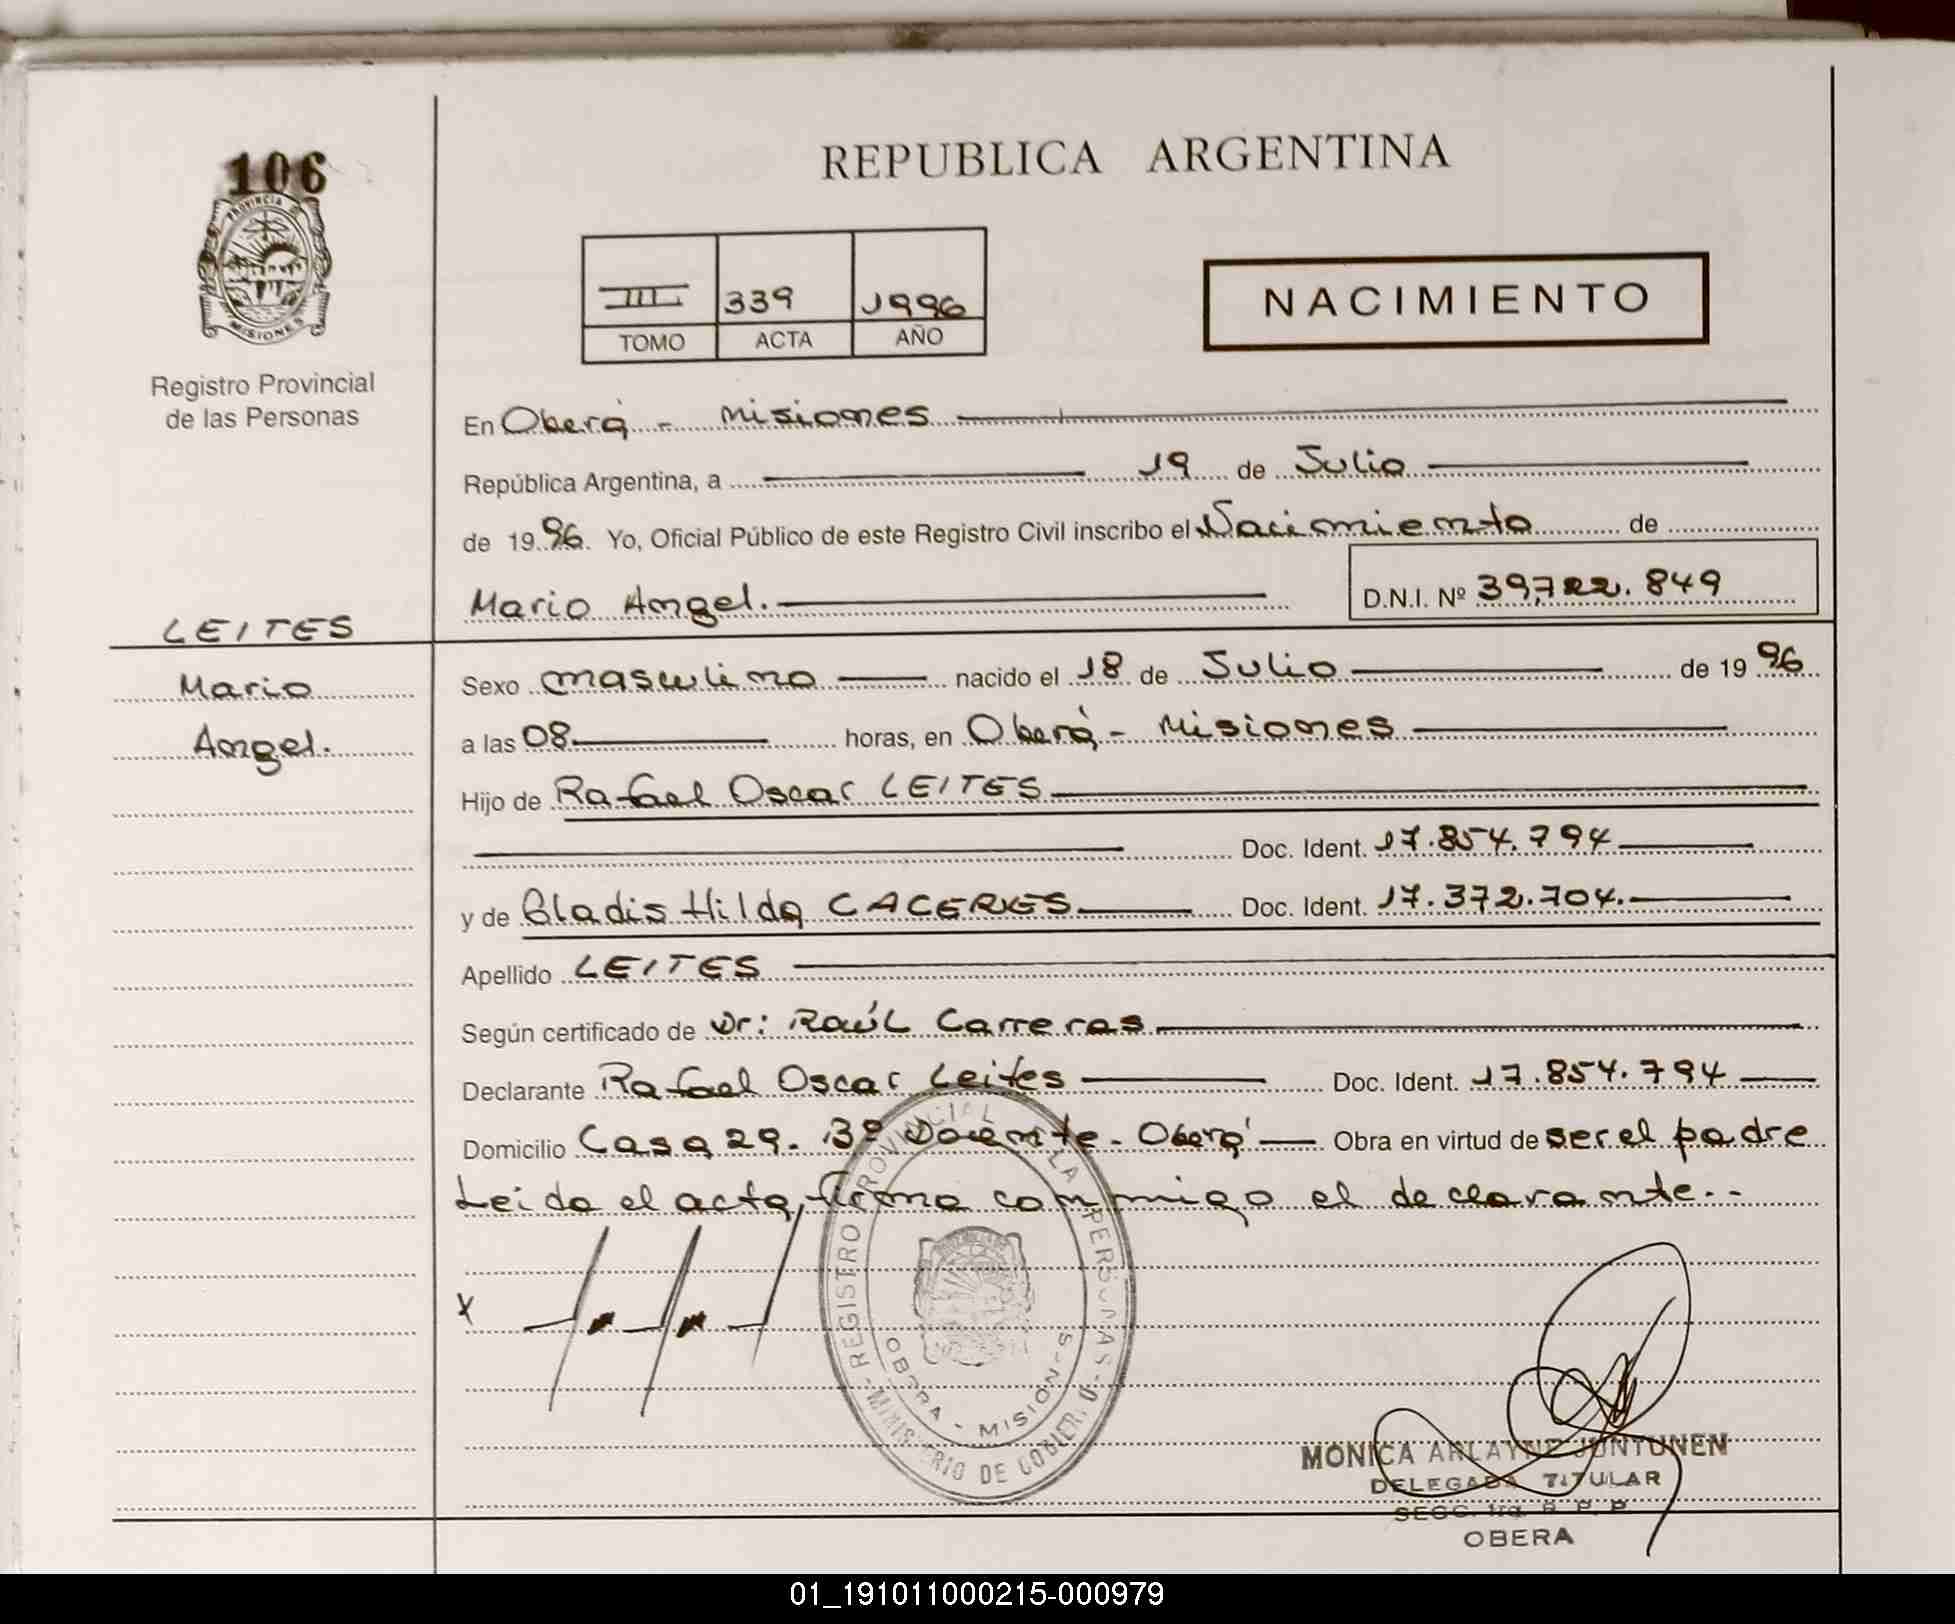 106
PROVINCIA
MISIONES
Registro Provincial
de las Personas
REPUBLICA ARGENTINA
III 339 1996
TOMO ACTA AÑO
NACIMIENTO
En Oberá - Misiones
República Argentina, a 19 de Julio
de 1996. Yo, Oficial Público de este Registro Civil inscribo el Nacimiento de
Mario Angel. D.N.I. Nº 39.722.849
LEITES
Mario
Angel.
Sexo masculino nacido el 18 de Julio de 1996
a las 08 horas, en Oberá - Misiones
Hijo de Rafael Oscar LEITES
Doc. Ident. 17.854.794
y de Gladis Hilda CACERES Doc. Ident. 17.372.704.
Apellido LEITES
Según certificado de Dr: Raúl Carreras
Declarante Rafael Oscar Leites Doc. Ident. 17.854.794
Domicilio Casa 29. 3º Docente - Oberá Obra en virtud de ser el padre
Leida el acta, firma conmigo el declarante.-
x
REGISTRO PROVINCIAL LA PERSONAS
MINISTERIO DE GOBIER
OBERA - MISIONES
MONICA ARLAYNE JUNTUNEN
DELEGADA TITULAR
SECC. 1ra R. P. P.
OBERA
01_191011000215-000979